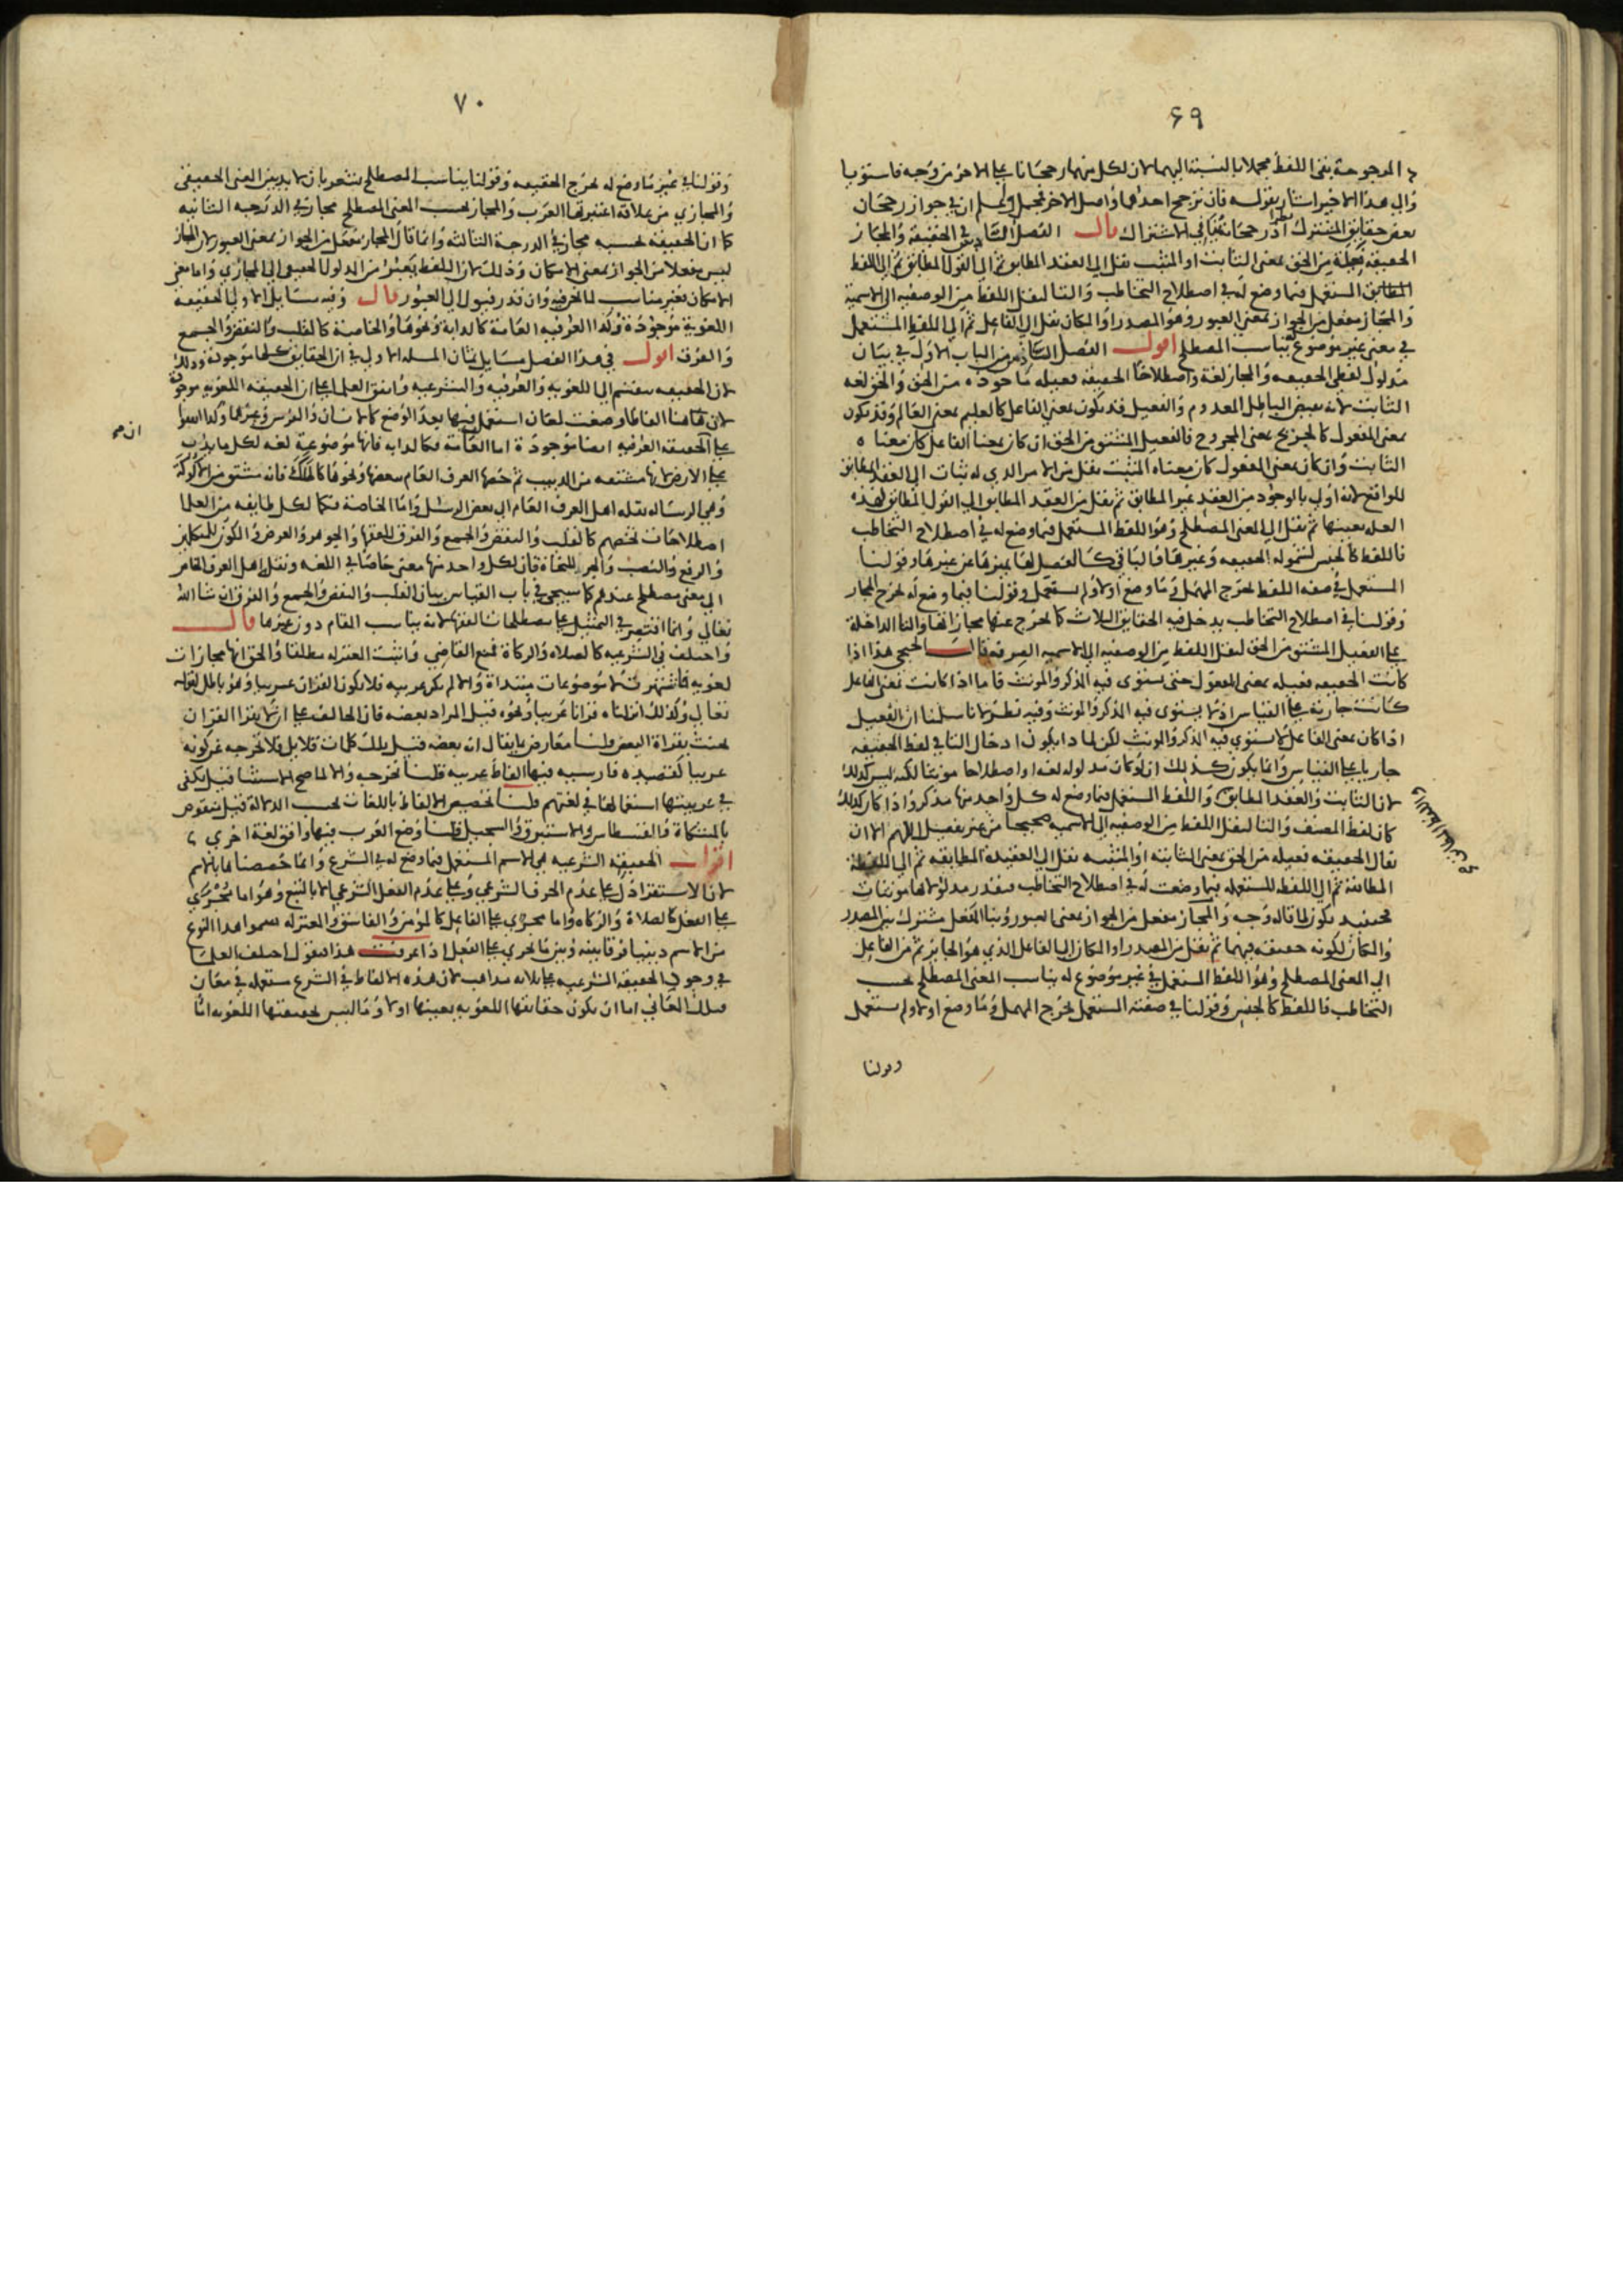 ٤٩
المرجوحة بقى اللفظ مجملا بالنسبة اليهما لان لكل منهما رجحانا على الاخر من وجه فاستويا
والى هذا الاخير اشار بقوله فان ترجح احدهما واصل الاخر فمجمل ولمسلم ان في جواز رجحان
بعض حقايق المشترك نظر اذ رجحانه ينافي الاشتراك قال الفصل السادس في الحقيقة والمجاز
الحقيقة فعيلة من الحق بمعنى الثابت او المثبت نقل الى العقد المطابق ثم الى القول المطابق ثم الى اللفظ
المستعمل فيما وضع له في اصطلاح التخاطب والتا لنقل اللفظ من الوصفيه الى الاسمية
والمجاز مفعل من الجواز بمعنى العبور وهو المصدر او المكان نقل الى الفاعل ثم الى اللفظ المستعمل
في معنى غير موضوع له يناسب المصطلح اقول الفصل السادس من الباب الاول في بيان
مدلول لفظى الحقيقه والمجاز لغة واصطلاحا الحقيقة فعيله ماخوذه من الحق والحق لغه
الثابت لانه نقيض الباطل المعدوم والفعيل قد يكون بمعنى الفاعل كالعليم بمعنى العالم وقد يكون
بمعنى المفعول كالجريح بمعنى المجروح فالفعيل المشتق من الحق ان كان بمعنى الفاعل كان معناه
الثابت وان كان بمعنى المفعول كان معناه المثبت نقل من الامر الذي له ثبات الى العقد المطابق
للواقع لانه اولى بالوجود من العقد غير المطابق ثم نقل من العقد المطابق الى القول المطابق لهذه
العله بعينها ثم نقل الى المعنى المصطلح وهو اللفظ المستعمل فيما وضع له في اصطلاح التخاطب
فاللفظ كالجنس لشموله الحقيقه وغيرها والباقى كالفصل لها يميزها عن غيرها وقولنا
المستعمل في صفه اللفظ لخرج المهمل وما وضع اولا ولم يستعمل وقولنا فيما وضع له لخرج المجاز
وقولنا في اصطلاح التخاطب يدخل فيه الحقايق الثلاث كما لخرج عنها مجازاتها والتا الداخلة
على الفعيل المشتق من الحق لنقل اللفظ من الوصفيه الى الاسميه الصرفه قال الخنجي هذا اذا
كانت الحقيقه فعيله بمعنى المفعول حتى يستوى فيه المذكر والمونث فاما اذا كانت بمعنى الفاعل
كانت جارية على القياس اذ لا يستوى فيه المذكر والمونث وفيه نظر لانا سلمنا ان الفعيل
اذا كان بمعنى الفاعل لا يستوي فيه المذكر والمونث لكن لما ذا يكون ادخال التا في لفظ الحقيقه
جاريا على القياس وانما يكون كذلك ان لو كان مدلوله لغه او اصطلاحا مونثا لكنه ليس كذلك
لان الثابت والعقد المطابق واللفظ المستعمل فيما وضع له كل واحد منها مذكر واذا كان كذلك
كان لفظ المصنف والتا لنقل اللفظ من الوصفيه الى الاسميه صحيحا من غير تفصيل اللهم الا ان
يقال الحقيقه فعيله من الحق بمعنى الثابته او المثبته نقل الى العقيده المطابقه ثم الى اللفظة
المطابقة ثم الى اللفظه المستعمله فيما وضعت له في اصطلاح التخاطب فبقدر مدلولاتها مونثات
فحينيد يكون لما قاله وجه والمجاز مفعل من الجواز بمعنى العبور وبنا المفعل مشترك بين المصدر
والمكان لكونه حقيقه فيهما ثم نقل من المصدر او المكان الى الفاعل الذي هو الجايز ثم من الفاعل
الى المعنى المصطلح وهو اللفظ المستعمل في غير موضوع له يناسب المعنى المصطلح بحسب
التخاطب فاللفظ كالجنس وقولنا في صفته المستعمل لخرج المهمل وما وضع اولا ولم يستعمل
وقولنا
٧٠
وقولنا في غير ما وضع له لخرج الحقيقه وقولنا يناسب المصطلح يشعر بان لا بد بين المعنى الحقيقى
والمجازي من علاقة اعتبرتها العرب والمجاز بحسب المعنى المصطلح مجاز في الدرجه الثانيه
كما ان الحقيقة لحسبه مجاز في الدرجة الثالثه وانما قال المجاز مفعل من الجواز بمعنى العبور لان المجاز
ليس مفعلا من الجواز بمعنى الامكان وذلك لان اللفظ يعبر من المدلول الحقيقى الى المجازي واما معنى
الامكان فغير مناسب لما نحن فيه وان قدر فيول الى العبور قال وفيه مسايل الاولى الحقيقة
اللغوية موجودة وكذا العرفيه العامة كالدابة ونحوها والخاصة كالقلب والنقض والجمع
والفرق اقول في هذا الفصل مسايل ثمان المسله الاولى في ان الحقايق كلها موجودة وذلك
لان الحقيقه تنقسم الى اللغويه والعرفيه والشرعيه واتفق العلما على ان الحقيقه اللغويه موجودة
لان هاهنا الفاظا وضعت لمعان استعمل فيها بعد الوضع كالانسان والفرس وغيرهما وكذا اتفقوا
ان
على الحقيقة العرفيه ايضا موجودة اما العامة فكالدابه فانها موضوعة لغه لكل ما يدب
على الارض لانها مشتقه من الدبيب ثم خصها العرف العام ببعضها ونحوها كالملك فانه مشتق من الالوكة
وهي الرساله نقله اهل العرف العام الى بعض الرسل واما الخاصة فكما لكل طايفه من العلما
اصطلاحات تخصهم كالقلب والنقض والجمع والفرق للفقها والجوهر والعرض والكون للمتكلمين
والرفع والنصب والجر للنحاة فان لكل واحد منها معنى خاصا في اللغه ونقل اهل العرف الخاص
الى معنى مصطلح عندهم كما سيجى في باب القياس بيان القلب والنقض والجمع والفرق ان شا الله
تعالى وانما اقتصر في التمثيل على مصطلحات الفقها لانه يناسب المقام دون غيرها قال
واختلف في الشرعيه كالصلاه والزكاة فمنع القاضي واثبت المعتزله مطلقا والحق انها مجازات
لغويه اشتهرت لا موضوعات مبتداة والا لم يكن عربيه فلا يكون القران عربيا وهو باطل لقوله
تعالى وكذلك انزلناه قرانا عربيا ونحوه قيل المراد بعضه فان الحالف على ان لا يقرا القران
لحنث بقراة البعض قلنا معارض بما يقال انه بعضه قيل تلك كلمات قلايل فلا تخرجه عن كونه
عربيا كقصيده فارسيه فيها الفاظ عربيه قلنا تخرجه والا لما صح الاستثنا قيل يكفى
في عربيتها استعمالها في لغتهم قلنا تخصيص الالفاظ باللغات بحسب الدلالة قيل منقوض
بالمشكاة والقسطاس والاستبرق والسجيل قلنا وضع العرب فيها وافق لغة اخري
اقول الحقيقة الشرعيه هى الاسم المستعمل فيما وضع له في الشرع وانما خصصناها بالاسم
لان الاستقرا دل على عدم الحرف الشرعي وعلى عدم الفعل الشرعي الا بالتبع وهو اما مجرى
على الفعل كالصلاة والزكاه واما مجرى على الفاعل كالمومن والفاسق والمعتزله سموا هذا النوع
من الاسم دينيا فرقا بينه وبين ما لجرى على الفعل اذا عرفت هذا فنقول اختلف العلما
في وجود الحقيقة الشرعيه على ثلاثه مذاهب لان هذه الالفاظ في الشرع مستعمله في معان
فتلك المعاني اما ان يكون حقايقها اللغويه بعينها اولا وما ليس بحقيقتها اللغويه اما